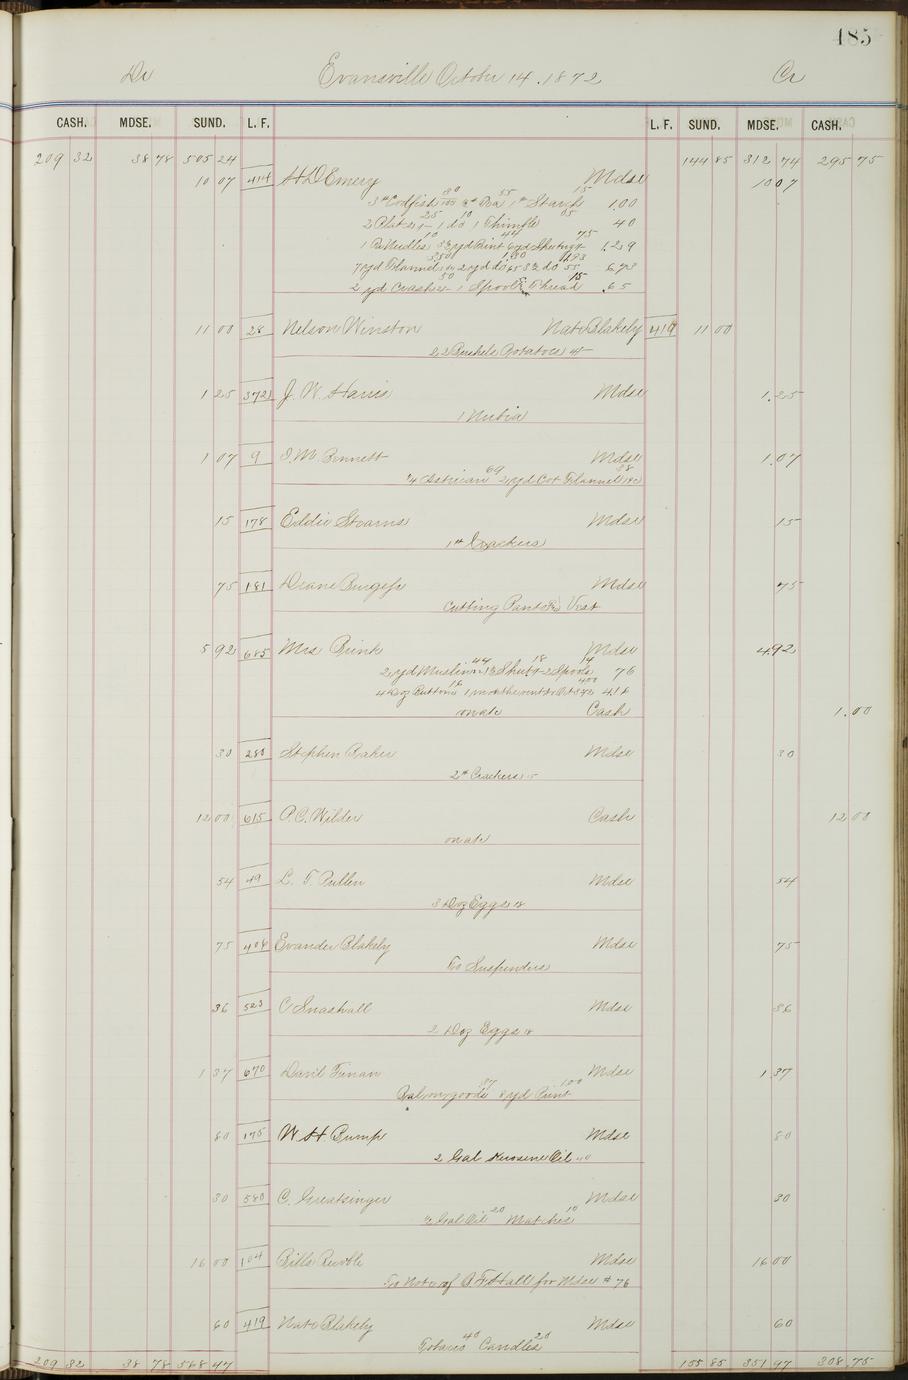 485
Dr Evansville October 14. 1872 Cr
CASH. MDSE. SUND. L. F. L. F. SUND. MDSE. CASH.
209 32 38 78 505 24 144 85 312 74 295 75
10 07 414 H D Emery Mdse 10 07
3# Codfish 30 55 1# Starch 15 1.00
2 Plates 25 1 do 10 1 Thimble 05 40
1 Pa Needles 10 3½ yd Print 44 6 yd Sheeting 75 1.29
7 yd Flannel 350 2 yd do 65 130 3½ do 55 1.93 6.73
2 yd Crash 25 50 1 Spool Thread 15 .65
11 00 28 Nelson Winston Nate Blakely 419 11 00
22 Bushels Potatoes
1 25 372 J. W. Harris Mdse 1.25
1 Nubia
1 07 9 I. M. Bennett Mdse 1.07
69 2 yd Cot Flannel 38
15 178 Eddie Stearns Mdse 15
1# Crackers
75 181 Deane Burgess Mdse 75
Cutting Pants & Vest
5 92 685 Mrs Brink Mdse 4.92
2 yd Muslin 44 18 2 Spools 14 76
4 Doz Buttons 16 400 4 16
on ate Cash 1.00
30 280 Stephen Baker Mdse 30
2# Crackers 15
12 00 615 P. C. Wilder Cash 12 00
on ate
54 49 L. T. Pullen Mdse 54
3 Doz Eggs 18
75 406 Evander Blakely Mdse 75
To Suspenders
36 523 C Snashall Mdse 36
2 Doz Eggs 18
1 37 670 David Finan Mdse 1 37
Balmorgoods 37 8 yd Print 100
80 175 W. H. Bump Mdse 80
2 Gal Kerosene Oil 40
30 580 C. Greatsinger Mdse 30
½ Gal Oil 20 Matches 10
16 00 104 Bills Receble Mdse 16 00
To Note of B. F. Hall for Mdse # 76
60 419 Nate Blakely Mdse 60
Tobacco 40 Candles 20
209 32 38 78 568 47 155 85 351 97 308.75